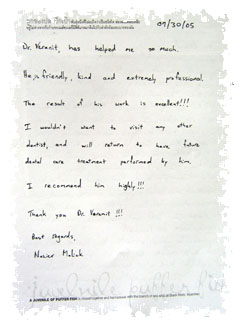 09/30/05
Dr. Veranit, has helped me so much.
He is friendly, kind and extremely professional.
The result of his work is excellent!!!
I wouldn't want to visit any other
dentist, and will return to have future
dental care treatment performed by him.
I recommend him highly!!!
Thank you Dr. Veranit !!!
Best regards,
juvenile puffer fish
A JUVENILE OF PUFFER FISH